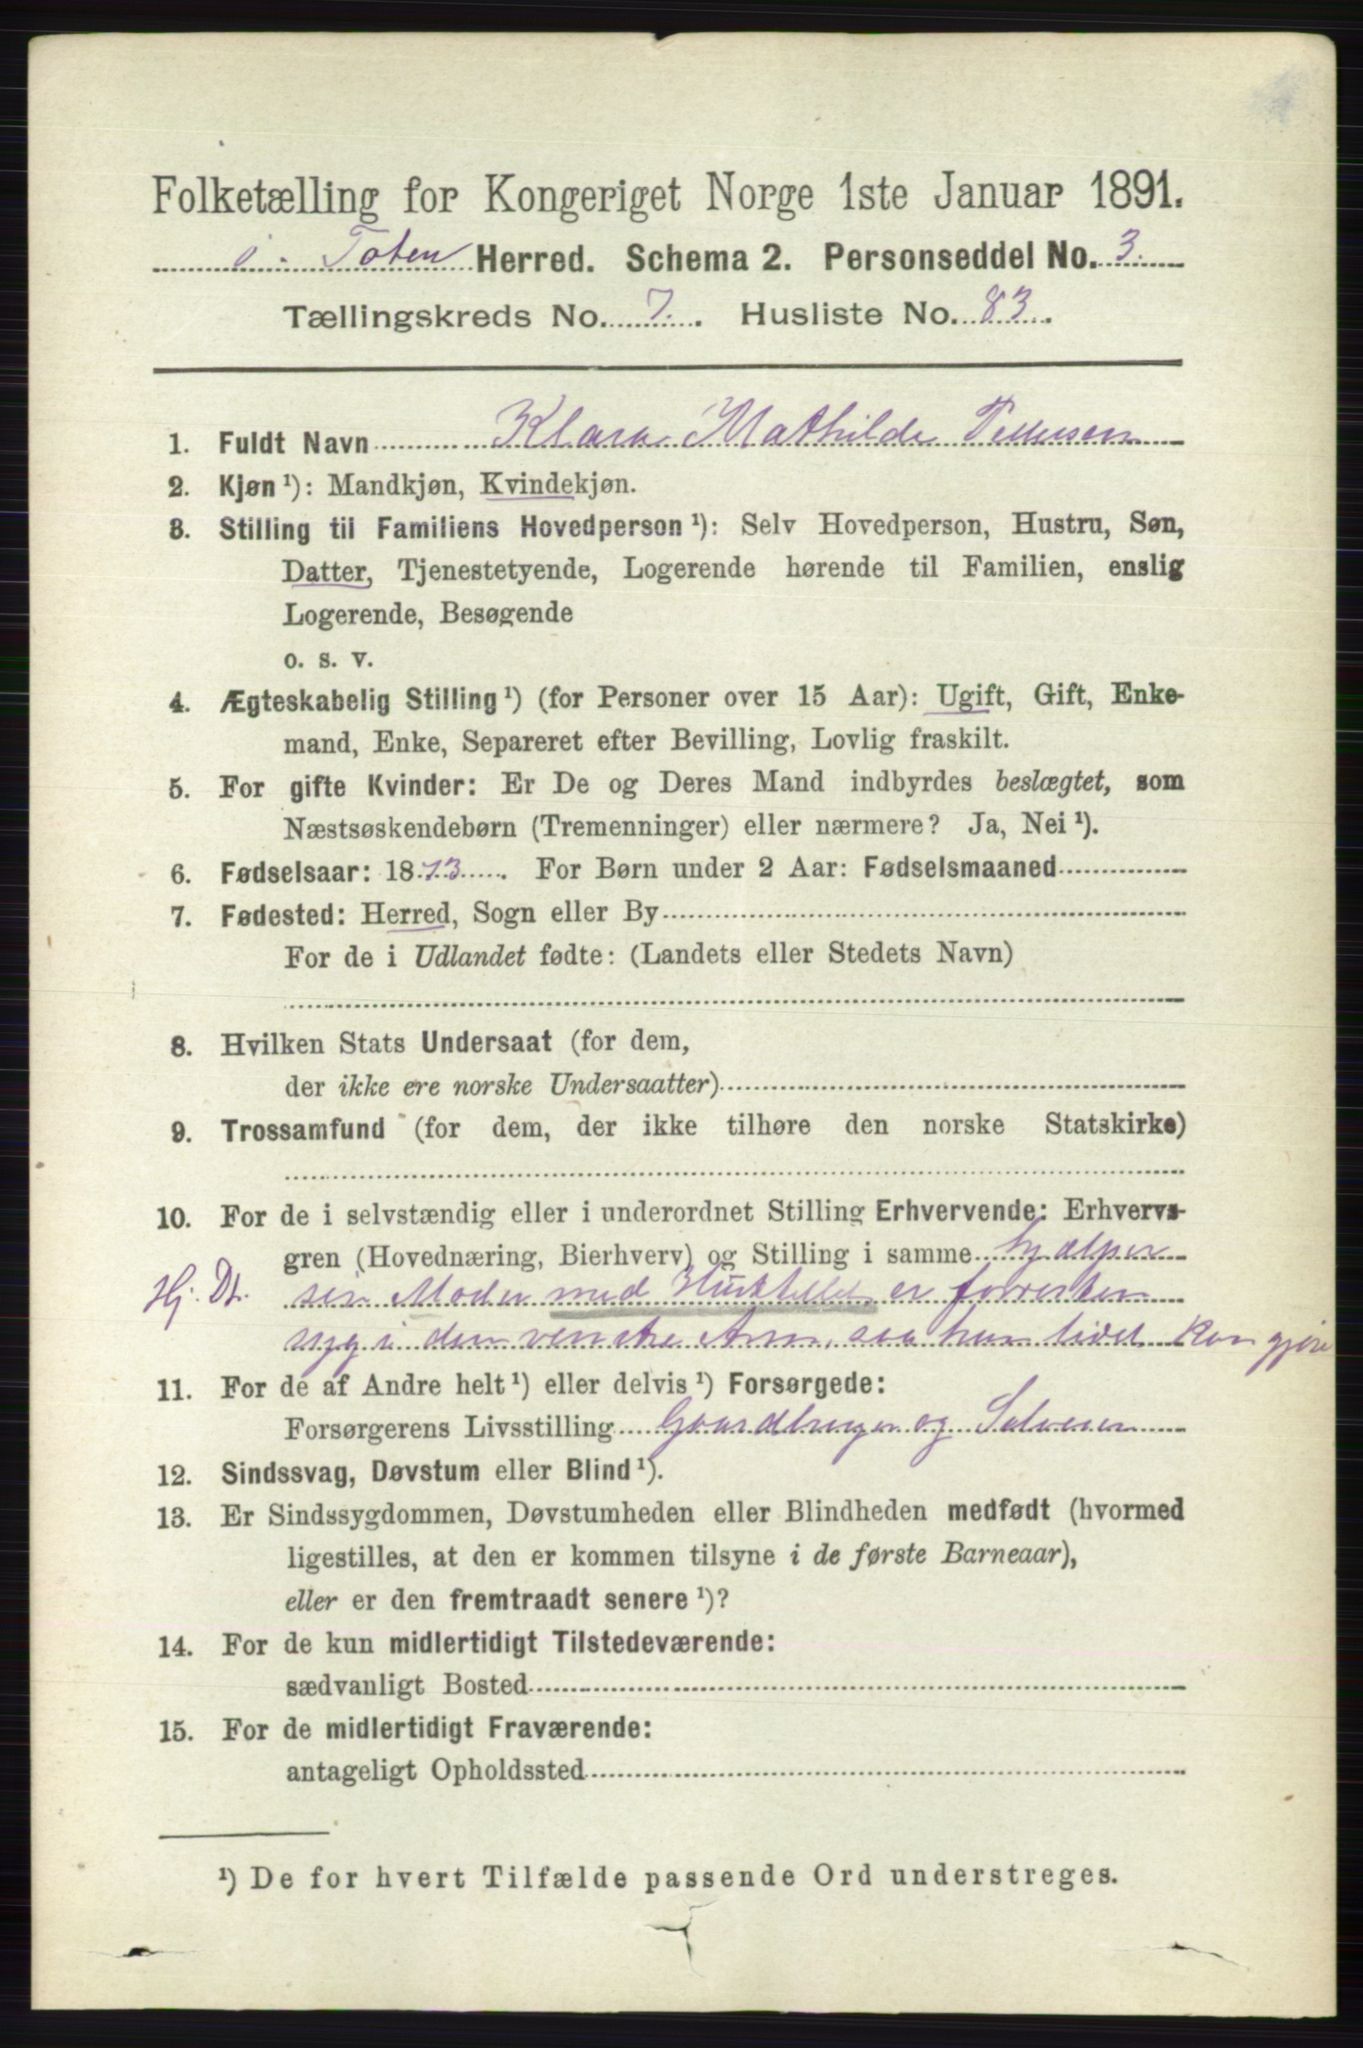 Folketælling for Kongeriget Norge 1ste Januar 1891.
Ö. Toten Herred. Schema 2. Personseddel No. 3.
Tællingskreds No. 7. Husliste No. 83.
1. Fuldt Navn Klara Mathilde
2. Kjøn ¹): Mandkjøn, Kvindekjøn.
3. Stilling til Familiens Hovedperson ¹): Selv Hovedperson, Hustru, Søn,
Datter, Tjenestetyende, Logerende hørende til Familien, enslig
Logerende, Besøgende
o. s. v.
4. Ægteskabelig Stilling ¹) (for Personer over 15 Aar): Ugift, Gift, Enke-
mand, Enke, Separeret efter Bevilling, Lovlig fraskilt.
5. For gifte Kvinder: Er De og Deres Mand indbyrdes beslægtet, som
Næstsøskendebørn (Tremenninger) eller nærmere? Ja, Nei ¹).
6. Fødselsaar: 1873. For Børn under 2 Aar: Fødselsmaaned
7. Fødested: Herred, Sogn eller By
For de i Udlandet fødte: (Landets eller Stedets Navn)
8. Hvilken Stats Undersaat (for dem,
der ikke ere norske Undersaatter)
9. Trossamfund (for dem, der ikke tilhøre den norske Statskirke)
10. For de i selvstændig eller i underordnet Stilling Erhvervende: Erhvervs-
gren (Hovednæring, Bierhverv) og Stilling i samme hjælper
Hj. Dt. sin Moder med Husstellet er forresten
syg i den venstre Arm, saa hun lidet kan gjøre
11. For de af Andre helt ¹) eller delvis ¹) Forsørgede:
Forsørgerens Livsstilling Gaardbruger og
12. Sindssvag, Døvstum eller Blind ¹).
13. Er Sindssygdommen, Døvstumheden eller Blindheden medfødt (hvormed
ligestilles, at den er kommen tilsyne i de første Barneaar),
eller er den fremtraadt senere ¹)?
14. For de kun midlertidigt Tilstedeværende:
sædvanligt Bosted
15. For de midlertidigt Fraværende:
antageligt Opholdssted
¹) De for hvert Tilfælde passende Ord understreges.